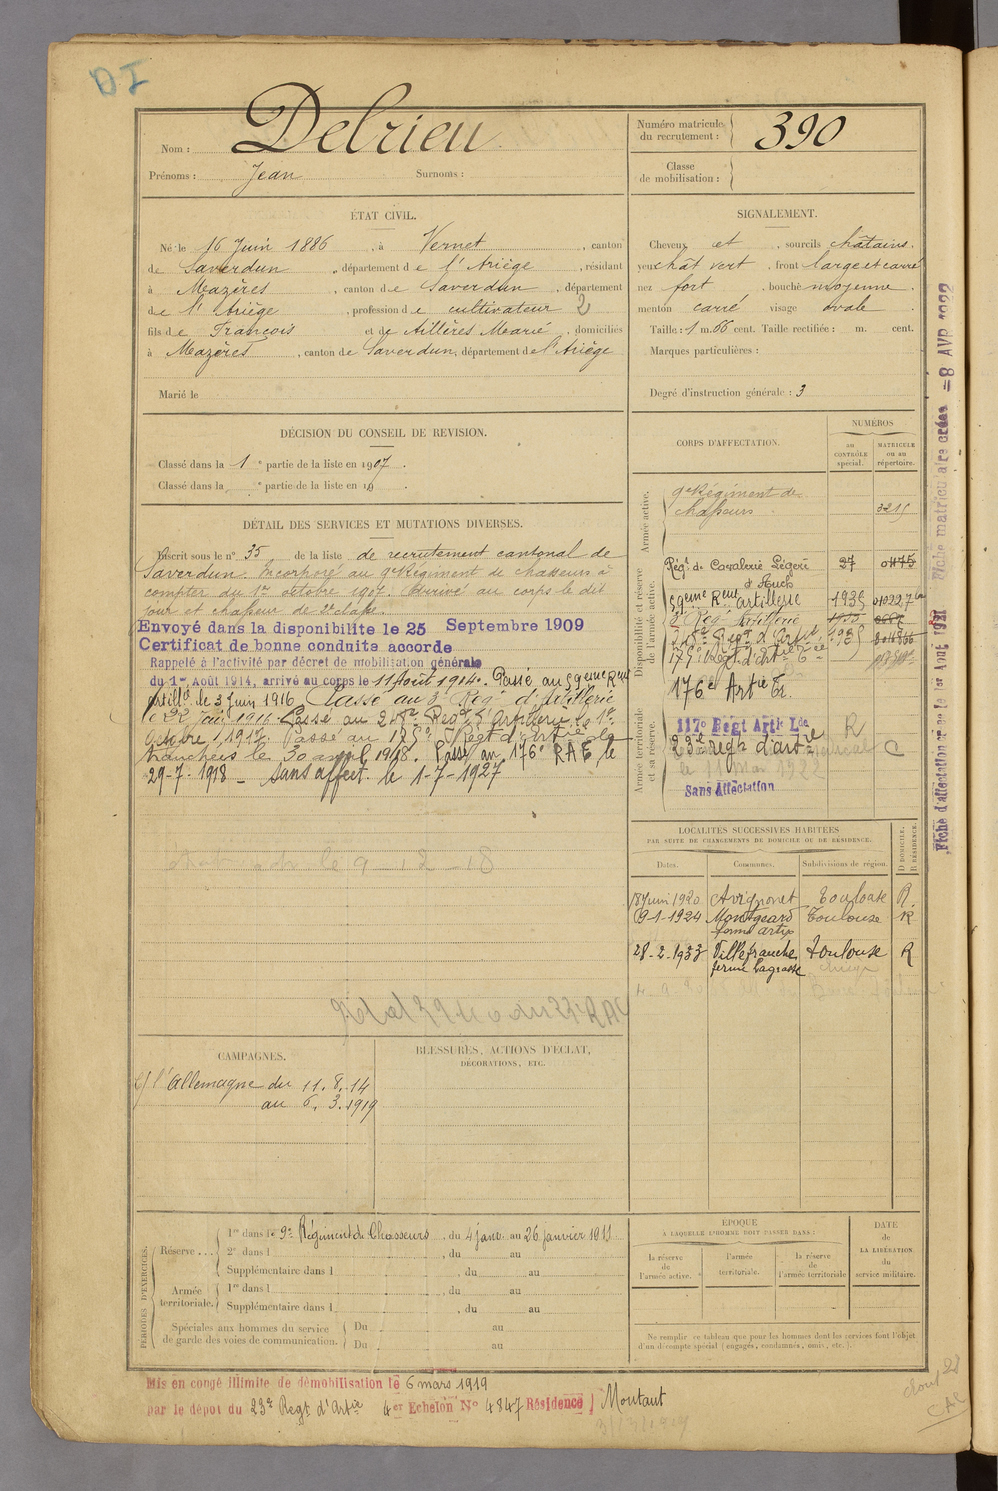 DI
Nom : Delrieu
Prénoms : Jean Surnoms :
Numéro matricule du recrutement : 390
Classe de mobilisation :
ÉTAT CIVIL.
Né le 16 Juin 1886, à Vernet, canton
de Saverdun, département de l'Ariège, résidant
à Mazères, canton de Saverdun, département
de l'Ariège, profession de cultivateur 2
fils de François et de Aillères Marie, domiciliés
à Mazères, canton de Saverdun, département de l'Ariège
Marié le
SIGNALEMENT.
Cheveux et, sourcils châtains.
yeux chât vert, front large et carré
nez fort, bouche moyenne.
menton carré visage ovale.
Taille : 1 m. 66 cent. Taille rectifiée : m. cent.
Marques particulières :
Degré d'instruction générale : 3
DÉCISION DU CONSEIL DE REVISION.
Classé dans la 1e partie de la liste en 1907.
Classé dans la e partie de la liste en 19
DÉTAIL DES SERVICES ET MUTATIONS DIVERSES.
Inscrit sous le n° 35 de la liste de recrutement cantonal de
Saverdun. Incorporé au 9e Régiment de chasseurs à
compter du 1er octobre 1907. Arrivé au corps le dit
jour et chasseur de 2e classe.
Envoyé dans la disponibilité le 25 Septembre 1909
Certificat de bonne conduite accordé
Rappelé à l'activité par décret de mobilisation générale
du 1er Août 1914, arrivé au corps le 11 Août 1914. Passé au 59eme Rgt
Artillie le 3 Juin 1916 Passé au 3e Reg d'Artillerie
le 22 juin 1916. Passé au Regt d'Artillerie le 1er
Octobre 1917. Passé au 175e Régt d'Artie de
tranchées le 30 avril 1918. Passé au 176e RAT, le
29-7-1918 _ Sans affect. le 1-7-1927
CORPS D'AFFECTATION.
NUMÉROS
au CONTRÔLE spécial.
MATRICULE ou au répertoire.
Armée active.
9e Régiment de
chasseurs 3215
Disponibilité et réserve de l'armée active.
Régt de Cavalerie Légère 27 01175
d'Auch
59eme Rgmt artillerie 1935
176e Artie Tr.
Armée territoriale et sa réserve.
117e Régt Artie Lde
23e regt d'artie R C
le 11 Mai 1922
Sans Affectation
LOCALITÉS SUCCESSIVES HABITÉES
PAR SUITE DE CHANGEMENTS DE DOMICILE OU DE RÉSIDENCE.
Dates. Communes. Subdivisions de région. D DOMICILE. R RÉSIDENCE.
18 Juin 1920 Avignonet Toulouse R.
9-1-1924 Montgeard Toulouse R
28-2-1933 Villefranche Toulouse R
ferme Lagrasse
CAMPAGNES.
C/ l'Allemagne du 11.8.14
au 6.3.1919
BLESSURES, ACTIONS D'ÉCLAT,
DÉCORATIONS, ETC.
PÉRIODES D'EXERCICES.
Réserve...
1re dans le 9e Régiment de Chasseurs, du 4 janv. au 26 janvier 1911
2e dans l , du au
Supplémentaire dans l , du au
Armée territoriale.
1re dans l , du au
Supplémentaire dans l , du au
Spéciales aux hommes du service
de garde des voies de communication.
Du au
Du au
ÉPOQUE
A LAQUELLE L'HOMME DOIT PASSER DANS :
la réserve de l'armée active.
l'armée territoriale.
la réserve de l'armée territoriale
DATE
DE LA LIBÉRATION
du service militaire.
Ne remplir ce tableau que pour les hommes dont les services font l'objet
d'un décompte spécial (engagés, condamnés, omis, etc.).
Mis en congé illimité de démobilisation le 6 mars 1919
par le dépôt du 23e Regt d'Artie 4er Echelon N° 4847 Résidence Montaut
Fiche matriculaire créée =8 AVR 1922
Fiche d'affectation créée le 1er Août 1921